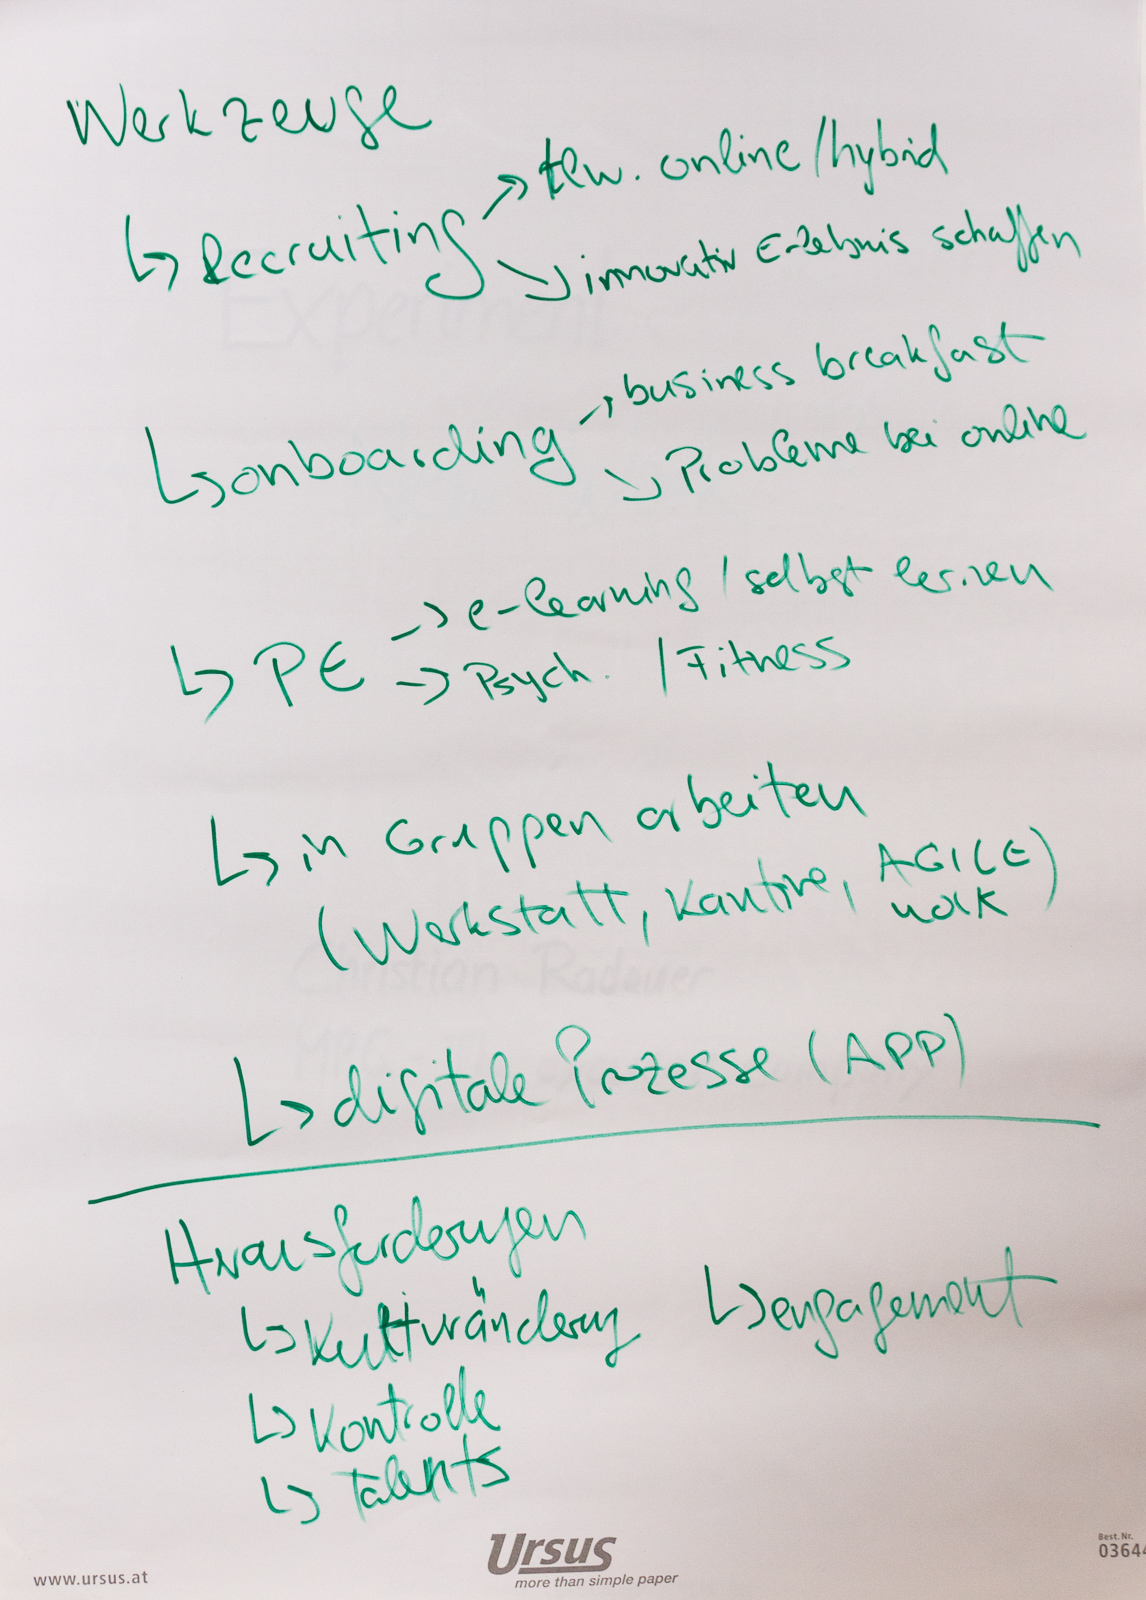 Werkzeuge
↳ Recruiting
↗ tlw. online/hybrid
↘ innovativ Erlebnis schaffen
↳ onboarding
↗ business breakfast
↘ Probleme bei online
↳ PE
→ e-learning / selbst lernen
→ Psych. / Fitness
↳ in Gruppen arbeiten
(Werkstatt, Kantine, AGILE
work)
↳ digitale Prozesse (APP)
Herausforderungen
↳ Kulturänderung
↳ engagement
↳ Kontrolle
↳ Talents
Experiment
Christian Radauer
www.ursus.at
Ursus
more than simple paper
Best. Nr.
03644